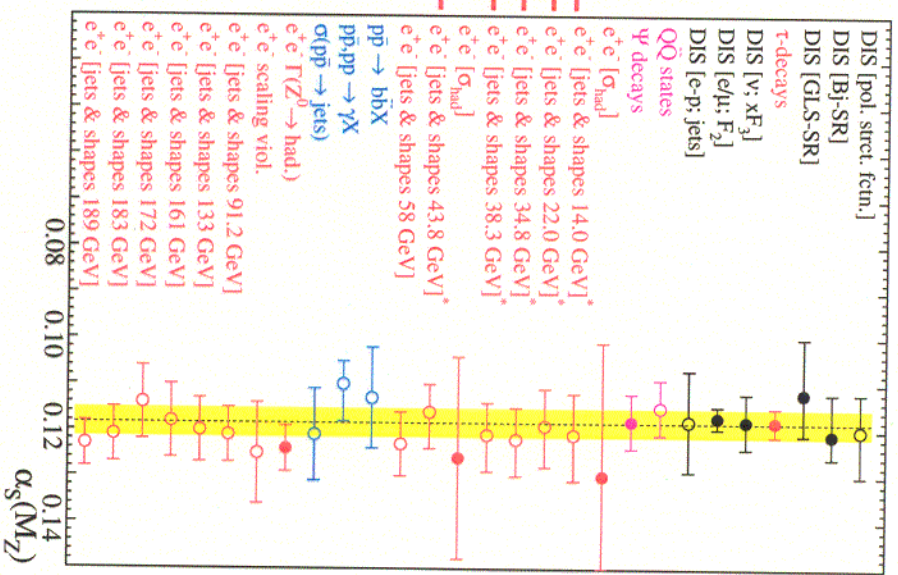 DIS [pol. strct. fctn.]
DIS [Bj-SR]
DIS [GLS-SR]
τ-decays
DIS [ν; xF₃]
DIS [e/μ; F₂]
DIS [e-p; jets]
QQ̄ states
Ψ decays
e⁺e⁻ [σ_had]
e⁺e⁻ [jets & shapes 14.0 GeV]*
e⁺e⁻ [jets & shapes 22.0 GeV]*
e⁺e⁻ [jets & shapes 34.8 GeV]*
e⁺e⁻ [jets & shapes 38.3 GeV]*
e⁺e⁻ [σ_had]
e⁺e⁻ [jets & shapes 43.8 GeV]*
e⁺e⁻ [jets & shapes 58 GeV]
pp̄ → bb̄X
pp̄, pp → γX
σ(pp̄ → jets)
e⁺e⁻ Γ(Z⁰ → had.)
e⁺e⁻ scaling viol.
e⁺e⁻ [jets & shapes 91.2 GeV]
e⁺e⁻ [jets & shapes 133 GeV]
e⁺e⁻ [jets & shapes 161 GeV]
e⁺e⁻ [jets & shapes 172 GeV]
e⁺e⁻ [jets & shapes 183 GeV]
e⁺e⁻ [jets & shapes 189 GeV]
0.08 0.10 0.12 0.14
α_s(M_Z)